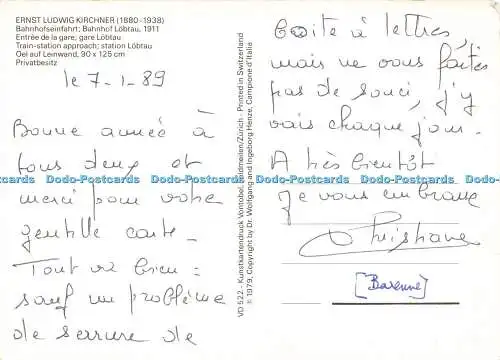 ERNST LUDWIG KIRCHNER (1880-1938)
Bahnhofseinfahrt; Bahnhof Löbtau, 1911
Entrée de la gare; gare Löbtau
Train-station approach; station Löbtau
Oel auf Leinwand, 90 x 125 cm
Privatbesitz
le 7-1-89
Bonne année à
tous deux et
merci pour votre
gentille carte.
Tout va bien :
sauf un problème
de serrure de
boite à lettres,
mais ne vous faites
pas de souci, j'y
vais chaque jour.
A très bientôt
Je vous embrasse
[Barenne]
VD 522 - Kunstkartendruck Vontobel, Feldmeilen/Zürich - Printed in Switzerland
© 1979, Copyright by Dr. Wolfgang and Ingeborg Henze, Campione d'Italia
Dodo-Postcards Dodo-Postcards Dodo-Postcards Dodo-Postcards Dodo-Postcards
Dodo-Postcards Dodo-Postcards Dodo-Postcards Dodo-Postcards Dodo-Postcards